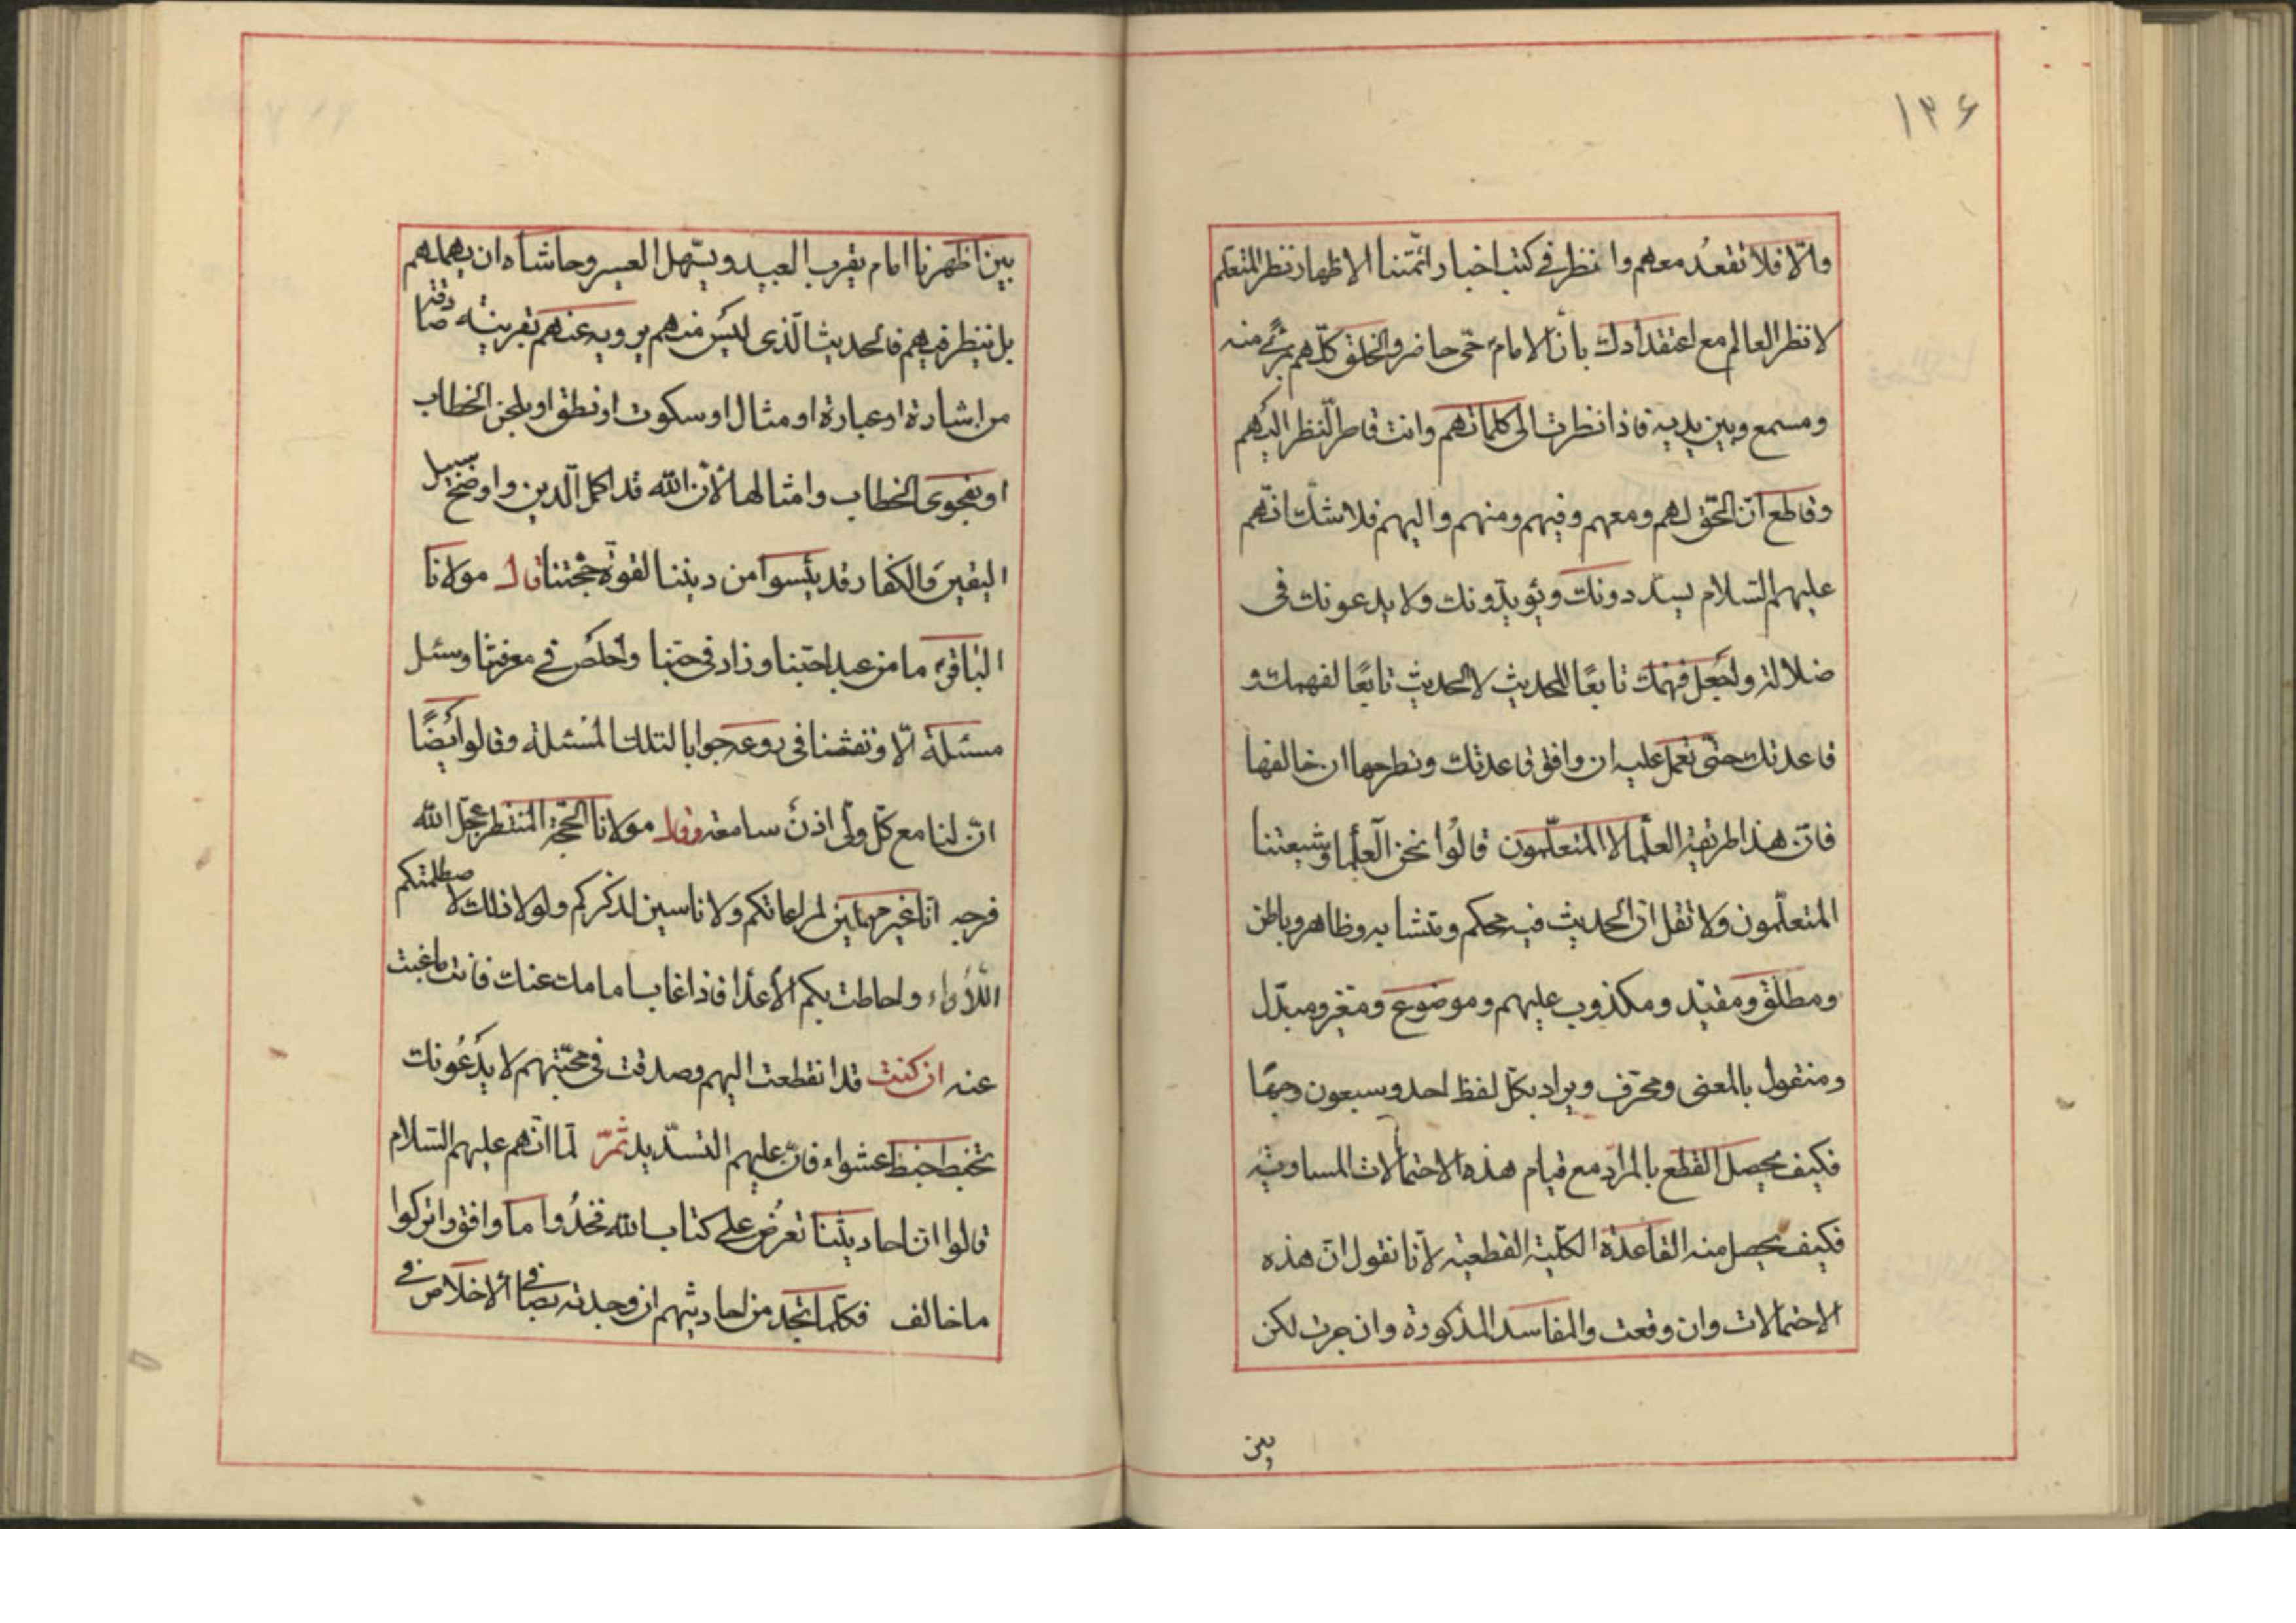 ١٣۶
والّا فلا تقعد معهم وانظر في كتب اخبار ائمّتنا الاطهار نظر المتعلم
لا نظر العالم مع اعتقادك بأنّ الامام حىّ حاضر والخلق كلّهم بمرئ منه
ومسمع وبين يديه فاذا نظرت الى كلماتهم وانت قاصر النظر اليهم
وقاطع انّ الحق لهم ومعهم وفيهم ومنهم واليهم فلا شك انّهم
عليهم السلام يسدّدونك ويؤيّدونك ولا يدعونك فى
ضلالة ولتجعل فهمك تابعًا للحديث لا الحديث تابعًا لفهمك و
قاعدتك حتى تعمل عليه ان وافق قاعدتك وتطرحها ان خالفها
فانّ هذا طريقة العلما لا المتعلّمون قالوا نحن العلما وشيعتنا
المتعلّمون ولا تقل انّ الحديث فيه محكم ومتشابه وظاهر وباطن
ومطلق ومقيّد ومكذوب عليهم وموضوع ومتغير ومبدّل
ومنقول بالمعنى ومحرّف ويراد بكلّ لفظ احد وسبعون وجهًا
فكيف يحصل القطع بالمراد مع قيام هذه الاحتمالات المساوية
فكيف يحصل منه القاعدة الكلّية القطعيّة لانّا نقول انّ هذه
الاحتمالات وان وقعت والمفاسد المذكورة وان جرت لكن
بين
بين اظهرنا امام يقرب البعيد ويسّهل العسير وحاشاه ان يهملهم
بل ينظر فيهم فالحديث الّذى ليس منهم يرويه عنهم بقرينة
من اشارة او عبارة او مثال او سكوت او نطق او بلحن الخطاب
او بفحوى الخطاب وامثالها لأنّ الله قد اكمل الدين واوضح سبيل
اليقين والكفار قد يئسوا من ديننا لقوّة حجّتنا قال مولانا
الباقر ما من عبد احبّنا وزاد فى حبّنا واخلص في معرفتنا وسئل
مسئلة الّا ونفثنا فى روعه جوابا لتلك المسئلة وقالوا أيضًا
انّ لنا مع كلّ ولىّ اذن سامعة وقال مولانا الحجّة المنتظر عجّل الله
فرجه انّا غير مهملين لمراعاتكم ولا ناسين لذكركم ولولا ذلك لاصطلمتكم
اللأواء واحاطت بكم الأعدا فاذا غاب امامك عنك فانت ما غبت
عنه ان كنت قد انقطعت اليهم وصدقت فى محبّتهم لا يدعونك
تخبط خبط عشواء فانّ عليهم التسّديد ثمّ لمّا انّهم عليهم السّلام
قالوا انّ احاديثنا تعرض على كتاب الله فخذوا ما وافق واتركوا
ما خالف فكلّما تجد من احاديثهم ان وجدته نصّا في الاخلاص في